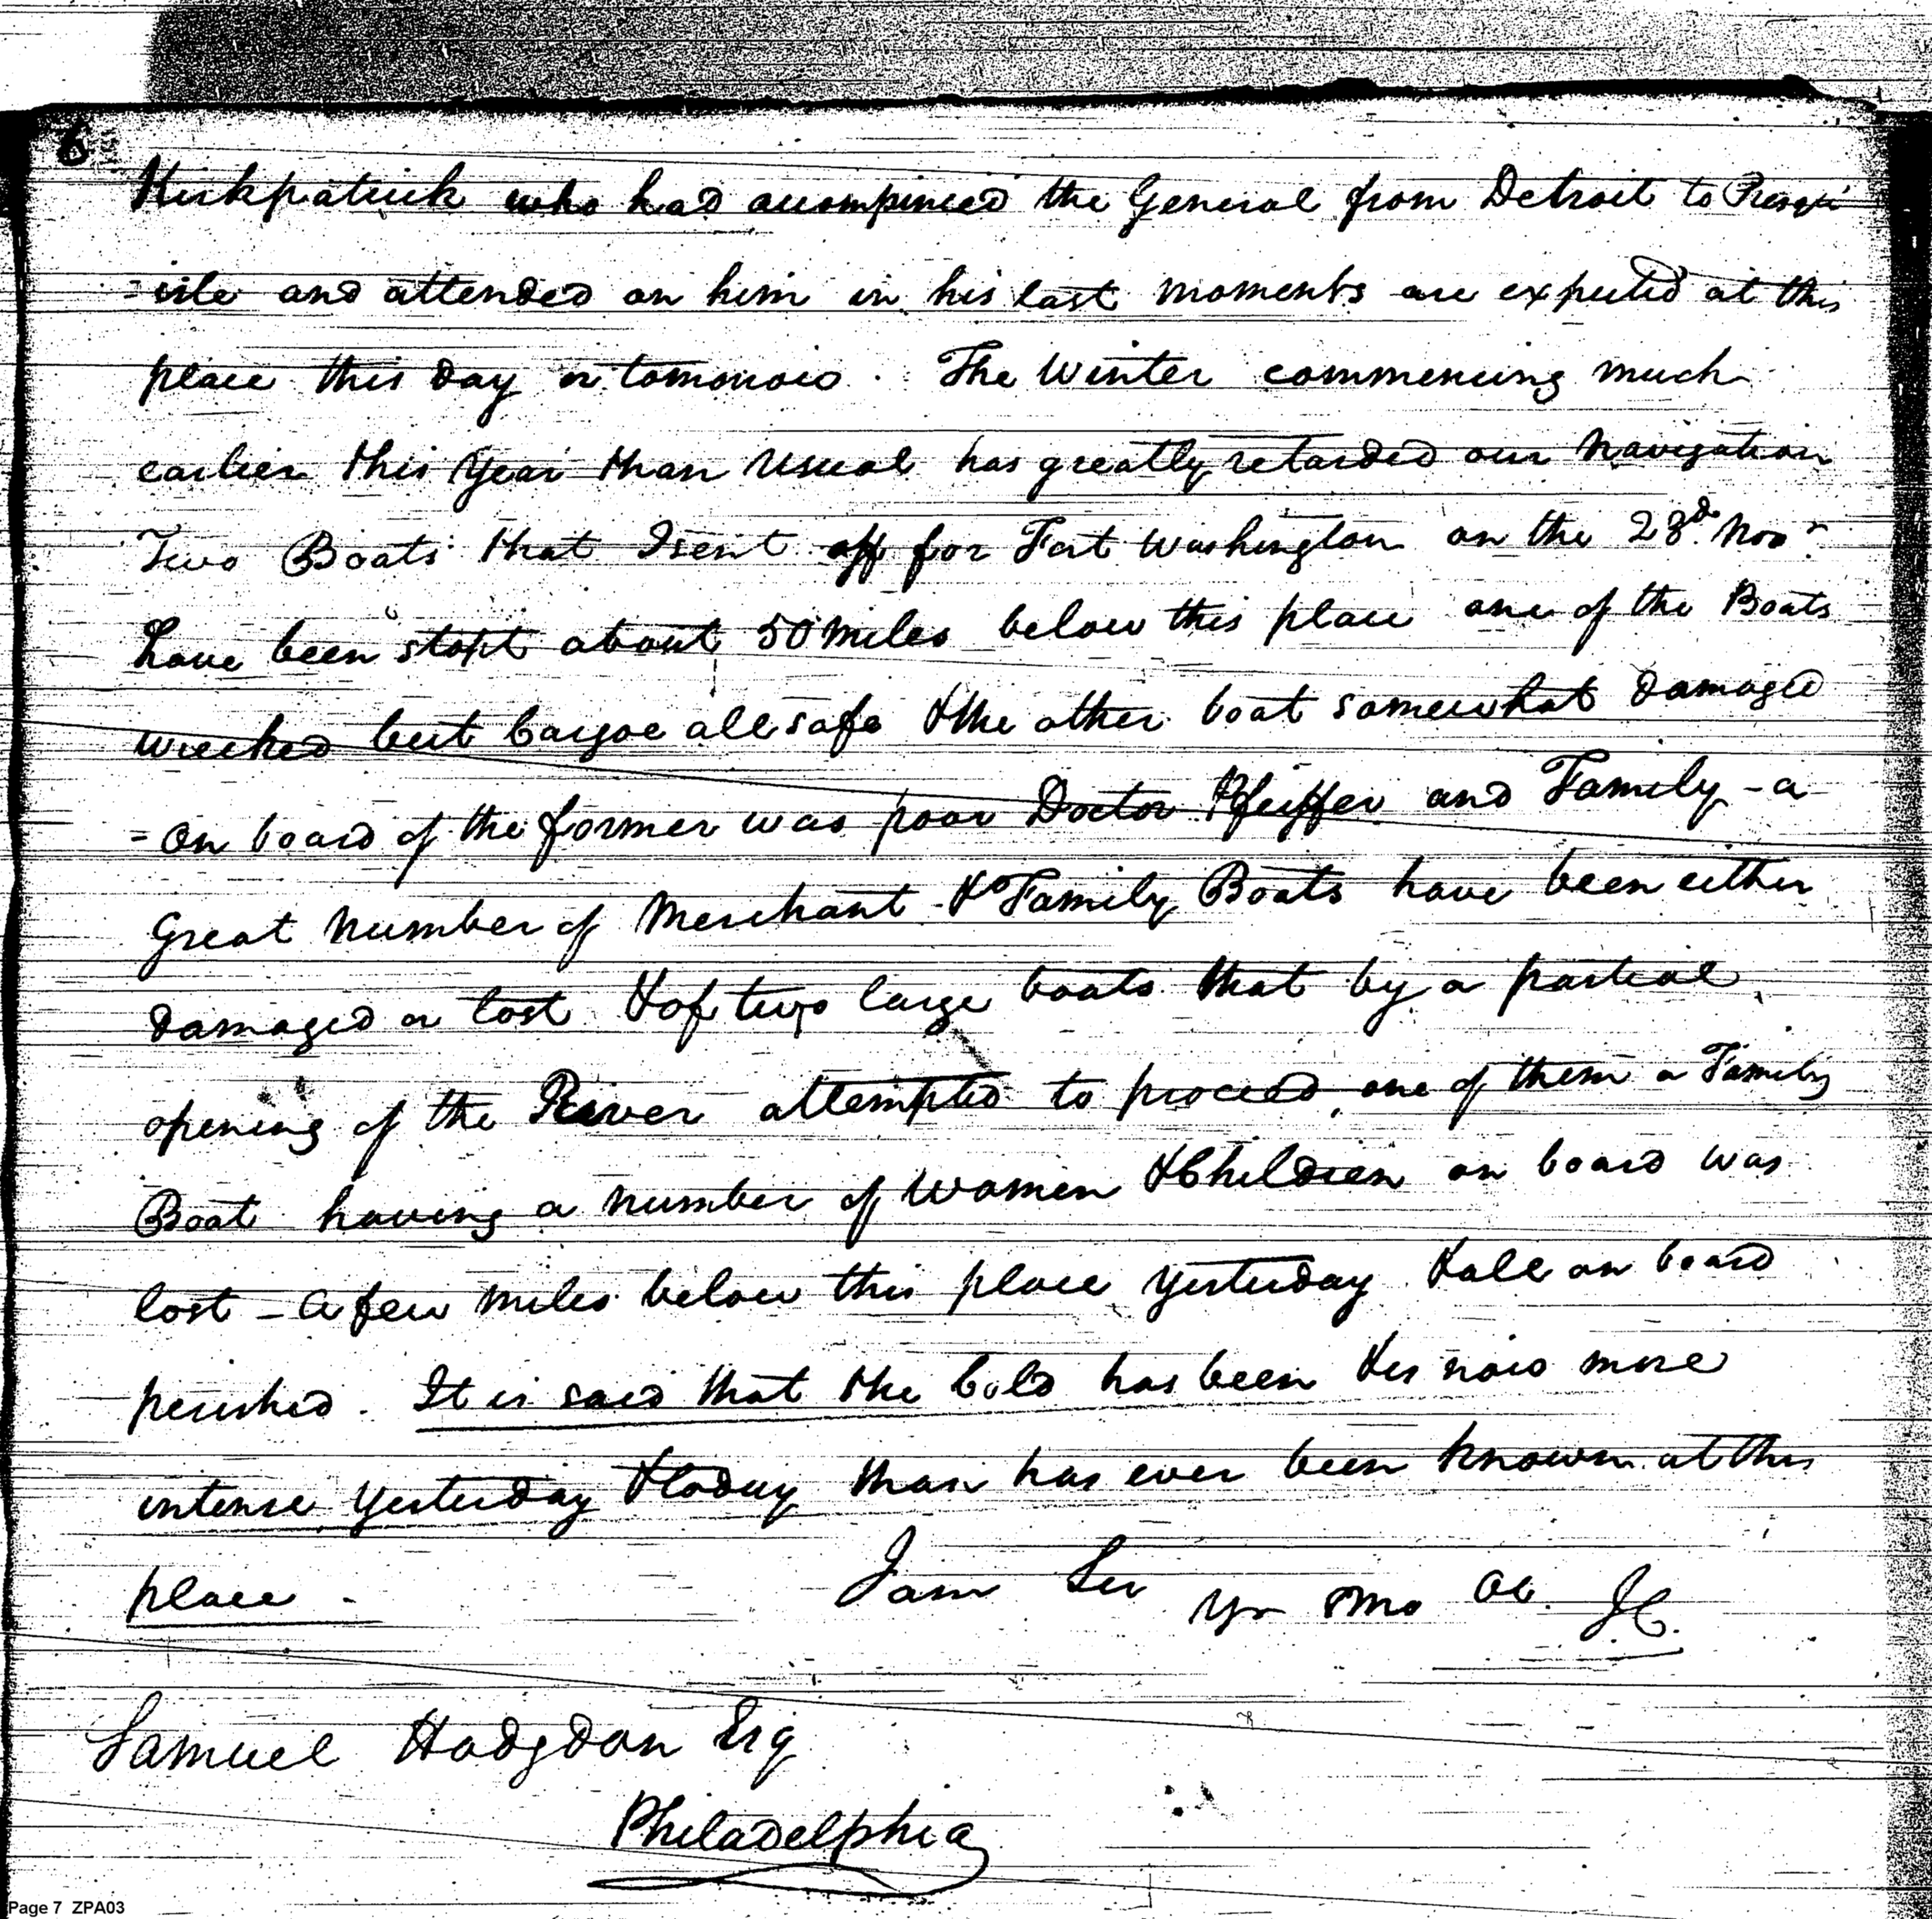 6
Kirkpatrick who had accompinied the General from Detroit to Presqu
=isle and attended on him in his last moments are expected at this
place this day or tomorrow. The Winter commencing much
earlier this Year than Usual has greatly retarded our Navigation
Two Boats that I sent off for Fort Washington on the 23d. Novr.
have been stopt about 50 miles below this place one of the Boats
wrecked but Cargoe all safe & the other boat somewhat damaged
- On board of the former was poor Doctor Pfeiffer and Family - a
Great Number of Merchant & Family Boats have been either
damaged or lost & of two large boats that by a partial
opening of the River attempted to proceed, one of them a Family
Boat having a number of Women & Children on board was
lost - a few miles below this place yesterday & all on board
perished. It is said that the Cold has been & is now more
intense yesterday & today than has ever been known at this
place -
I am Sir Yr Mo Ob. JC.
Samuel Hodgdon Esq
Philadelphia
Page 7 ZPA03